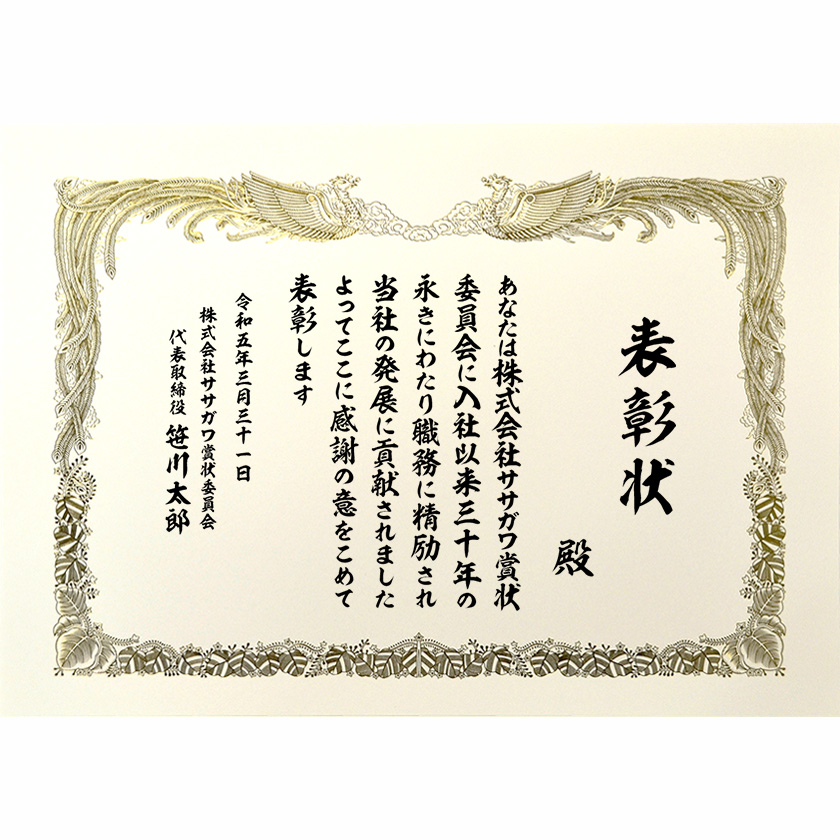 表彰状
殿
あなたは株式会社ササガワ賞状
委員会に入社以来三十年の
永きにわたり職務に精励され
当社の発展に貢献されました
よってここに感謝の意をこめて
表彰します
令和五年三月三十一日
株式会社ササガワ賞状委員会
代表取締役 笹川太郎